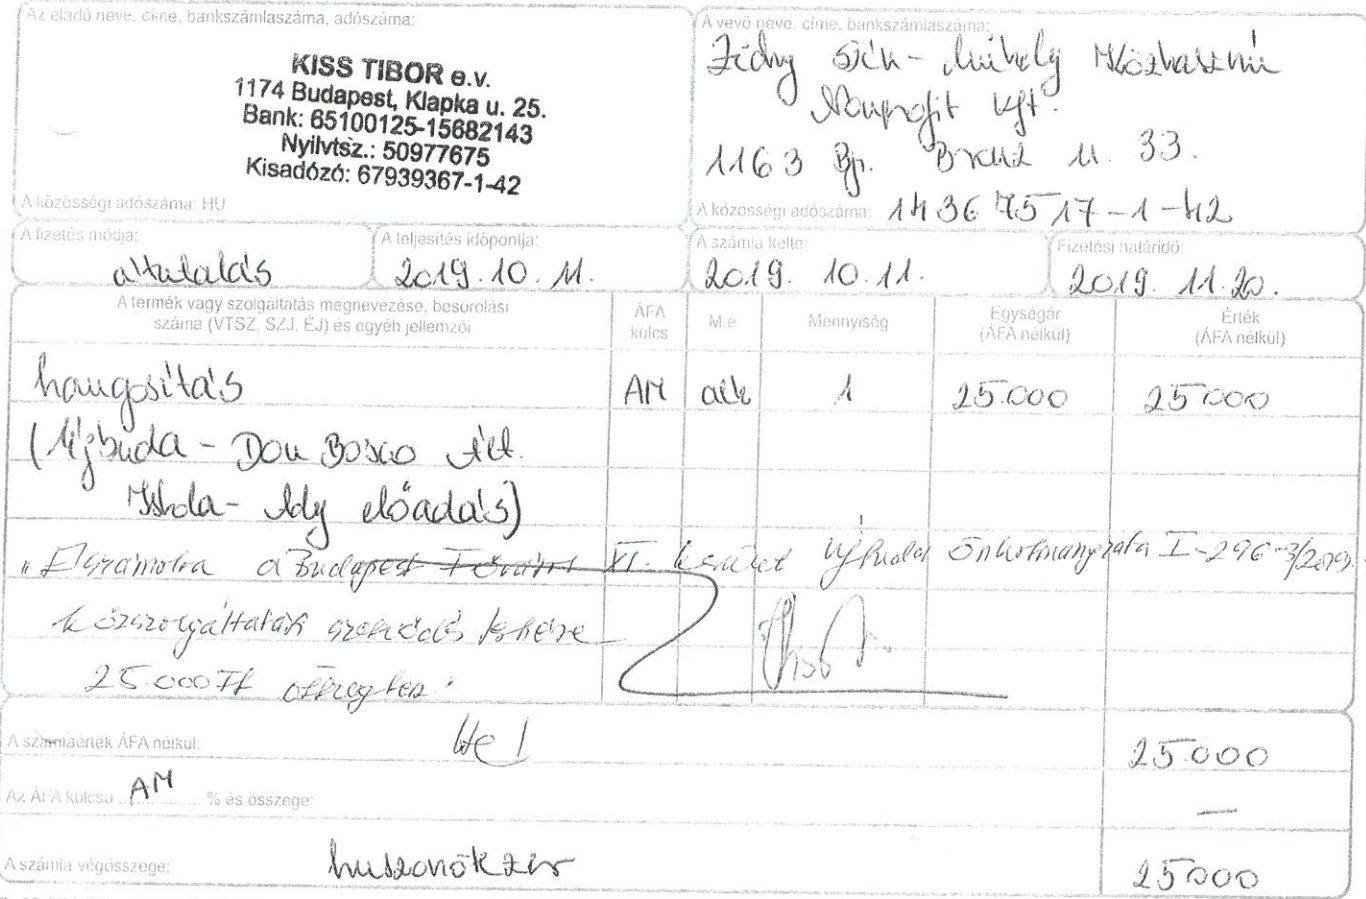 Az eladó neve, címe, bankszámlaszáma, adószáma:
KISS TIBOR e.v.
1174 Budapest, Klapka u. 25.
Bank: 65100125-15682143
Nyilvtsz.: 50977675
Kisadózó: 67939367-1-42
A közösségi adószáma: HU
A vevő neve, címe, bankszámlaszáma:
Műhely Közhasznú
Nonprofit Kft.
1163 Bp. u. 33.
A közösségi adószáma: 14367517-1-42
A fizetés módja:
átutalás
A teljesítés időpontja:
2019.10.11.
A számla kelte:
2019. 10.11.
Fizetési határidő:
2019. 11.20.
A termék vagy szolgáltatás megnevezése, besorolási
száma (VTSZ, SZJ, ÉJ) és egyéb jellemzői
ÁFA
kulcs
M.e
Mennyiség
Egységár
(ÁFA nélkül)
Érték
(ÁFA nélkül)
hangosítás AM alk 1 25.000 25.000
(Újbuda - Don Bosco Ált.
Iskola - Ady előadás)
"Elszámolva a Budapest Főváros XI. kerület Újbuda Önkormányzata I-296-3/2019.
közszolgáltatási szerződés terhére
25.000 Ft összegben."
A számlaérték ÁFA nélkül:
25.000
Az ÁFA kulcsa AM % és összege:
—
A számla végösszege: huszonötezer 25000